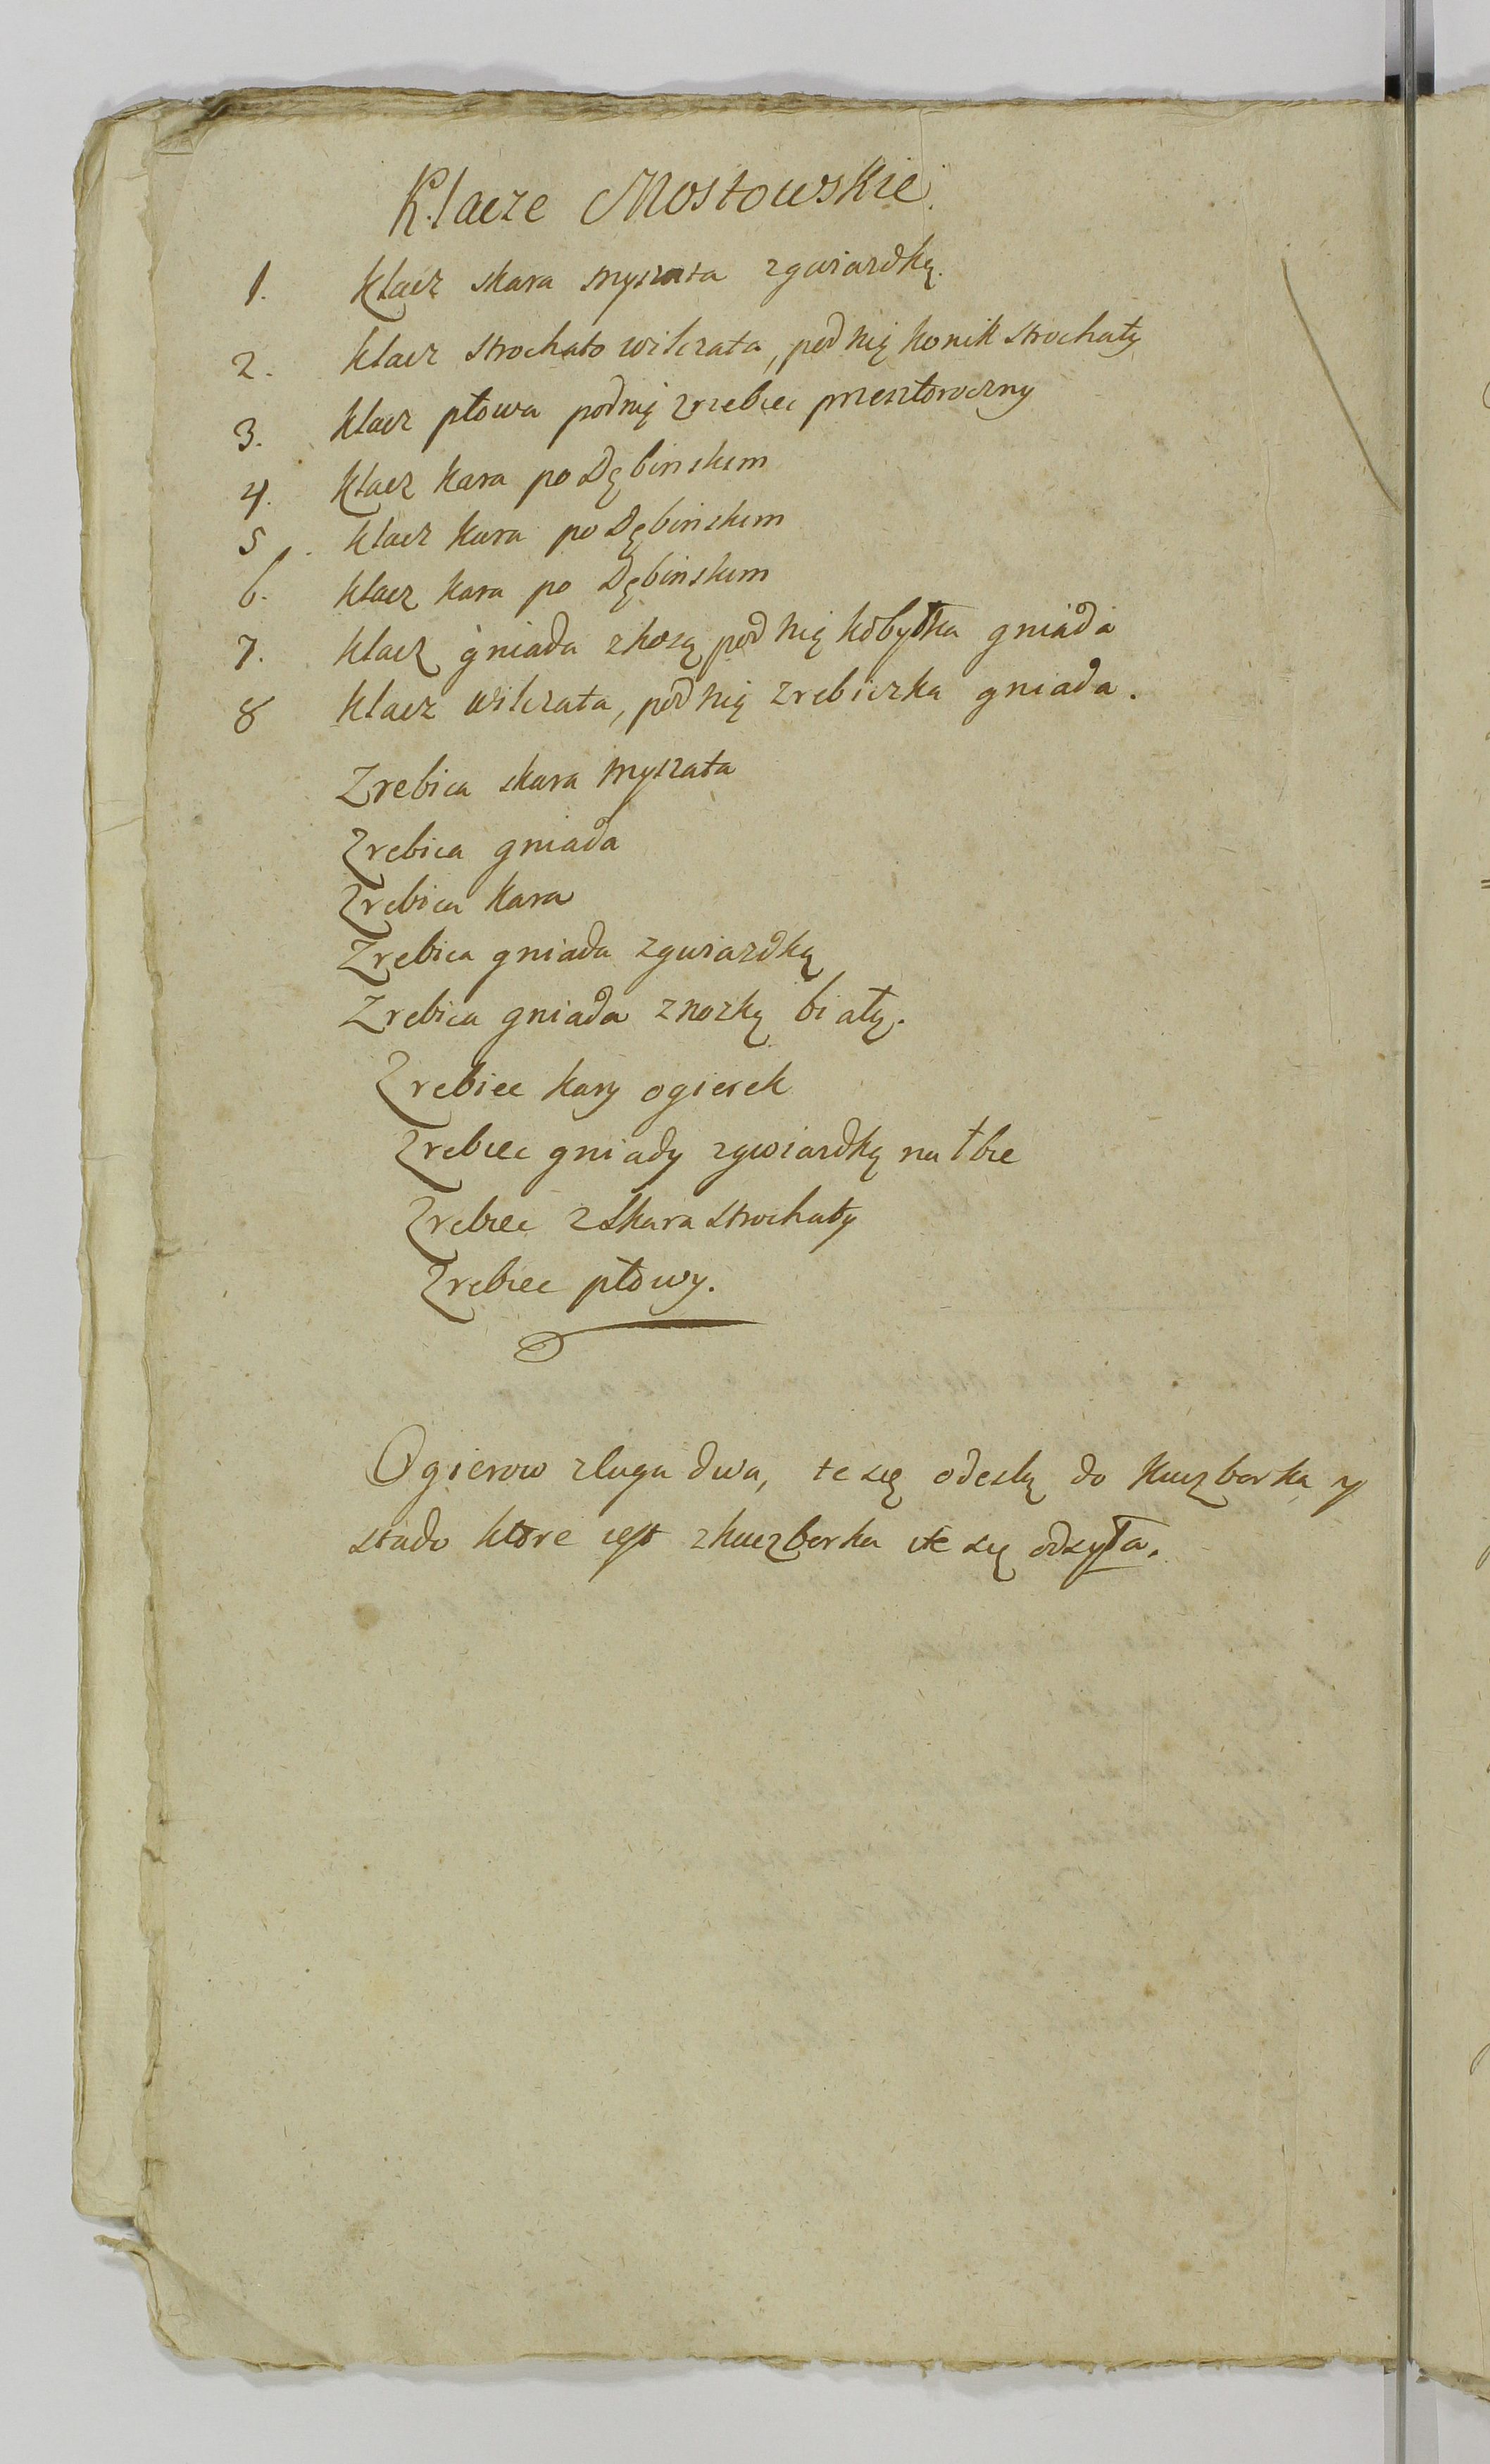 Klacze Mostowskie.
1. Klacz skara myszata zgwiazdką.
2. klacz strochato wilczata, pod nią konik strochaty
3. klacz płowa podnią zrzebiec przeszłoroczny
4. klacz kara po Dębinskim
5. klacz kara po Dębinskim
6. klacz kara po Dębinskim
7. klacz gniada zkosą pod nią kobyłka gniada
8 klacz wilczata, pod nią zrebiczka gniada.
Zrebica skara myszata
Zrebica gniada
Zrebica kara
Zrebica gniada zgwiazdką
Zrebica gniada znozką białą.
Zrebiec kary ogierek
Zrebiec gniady zgwiazdką na łbie
Zrebiec zskara strochaty
Zrebiec płowy.
Ogierow zługa dwa, te się odeslą do Kuczborka y
stado ktore iest zkuczborka też się odsyła.